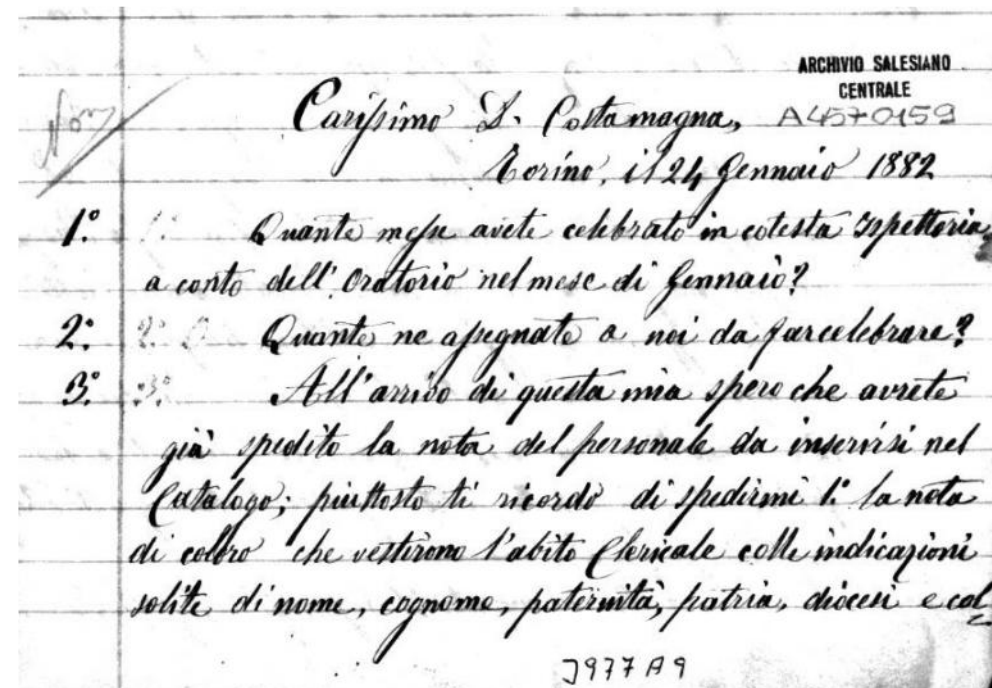 ARCHIVIO SALESIANO
CENTRALE
A4570159
Non
Carissimo D. Costamagna,
Torino, il 24 Gennaio 1882
1° Quante messe avete celebrato in cotesta Ispettoria
a conto dell'Oratorio nel mese di Gennaio?
2° 2° Quante ne assegnate a noi da far celebrare?
3° 3° All'arrivo di questa mia spero che avrete
già spedito la nota del personale da inserirsi nel
Catalogo; piuttosto ti ricordo di spedirmi 1° la nota
di coloro che vestirono l'abito Clericale colle indicazioni
solite di nome, cognome, paternità, patria, diocesi e col